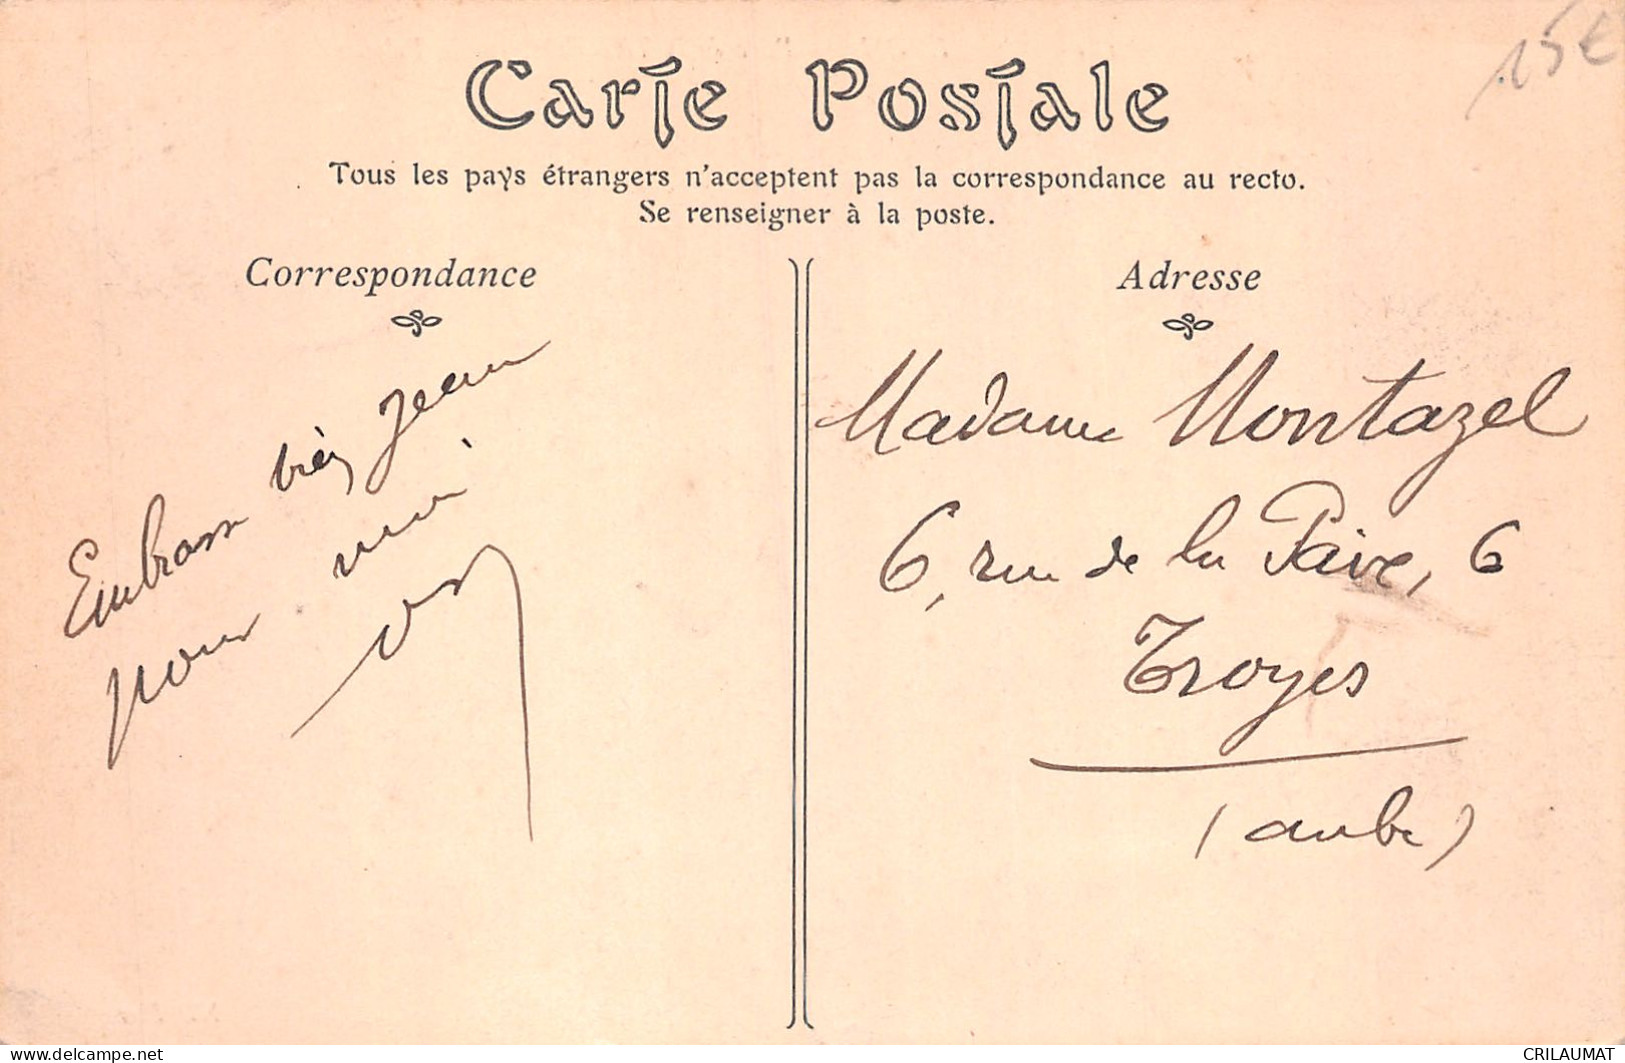 15€
Carte Postale
Tous les pays étrangers n'acceptent pas la correspondance au recto.
Se renseigner à la poste.
Correspondance
Embrasse bien Jean
pour moi
Adresse
Madame Montazel
6, rue de la Paix, 6
Troyes
(aube)
delcampe.net
CRILAUMAT